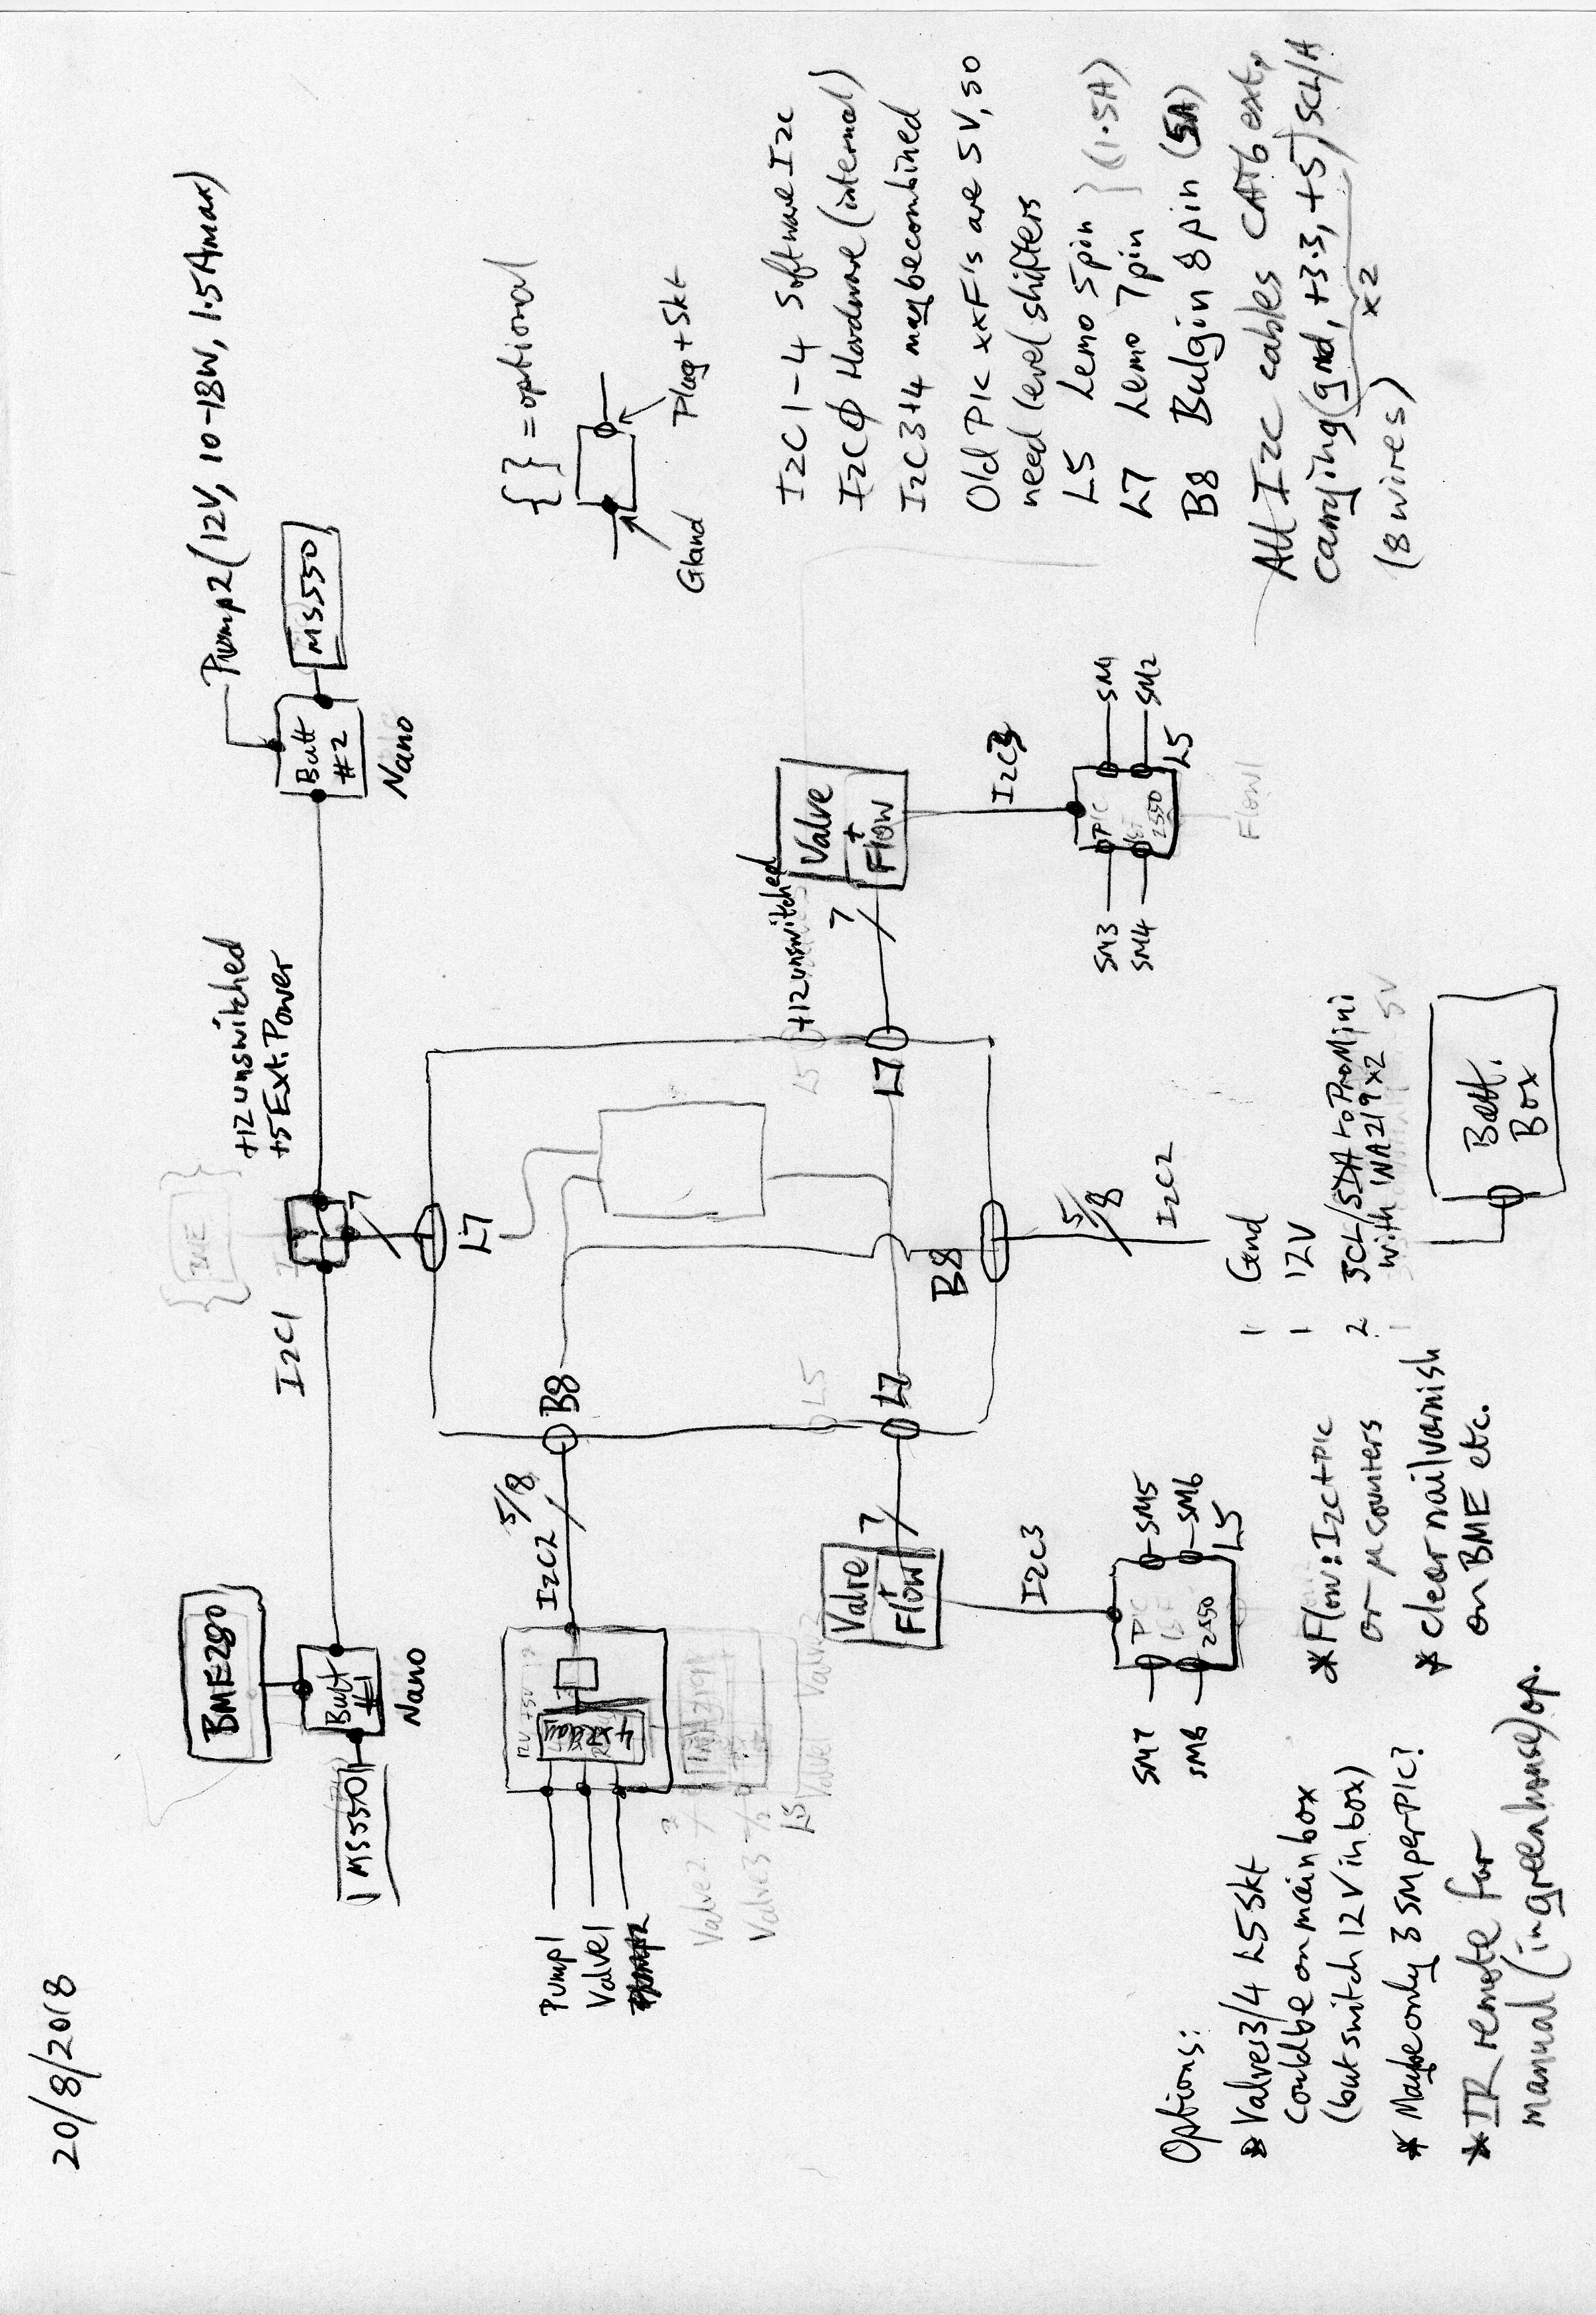 20/8/2018
BME280
Butt
#1
Nano
MS5501
I2C1
{[BME]}
+12 unswitched
+5 Ext. Power
7
L7
Butt
#2
Nano
MS550
Pump2 (12V, 10-18W, 1.5Amax)
{ } = optional
Gland
Plug + Skt
Pump1
Valve1
12V +5V
4 x relay
INA219
Valve2 ?
Valve3
L5
Valve1
I2C2
5/8
B8
L5
L7
L5
L7
B8
5/8
I2C2
+12 unswitched
7
Valve
+
Flow
I2C3
PIC
2550
SM1
SM2
SM3
SM4
L5
Flow1
Valve
+
Flow
7
I2C3
PIC
2550
SM5
SM6
SM7
SM8
L5
1 Gnd
1 12V
2 SCL/SDA to ProMini
with INA219 x2
1 5V
Batt.
Box
I2C1-4 Software I2C
I2C0 Hardware (internal)
I2C3+4 may be combined
Old PIC xxF's are 5V, so
need level shifters
L5 Lemo 5pin } (1.5A)
L7 Lemo 7pin
B8 Bulgin 8pin (5A)
All I2C cables CAT6 ext,
carrying (gnd, +3.3, +5) SCL/A
x2
(8 wires)
Options:
* Valves3/4 L5 Skt
could be on main box
(but switch 12V in box)
* Maybe only 3 SM per PIC?
* IR remote for
manual (in greenhouse) op.
* Flow: I2C+PIC
or μcounters
* clear nail varnish
on BME etc.